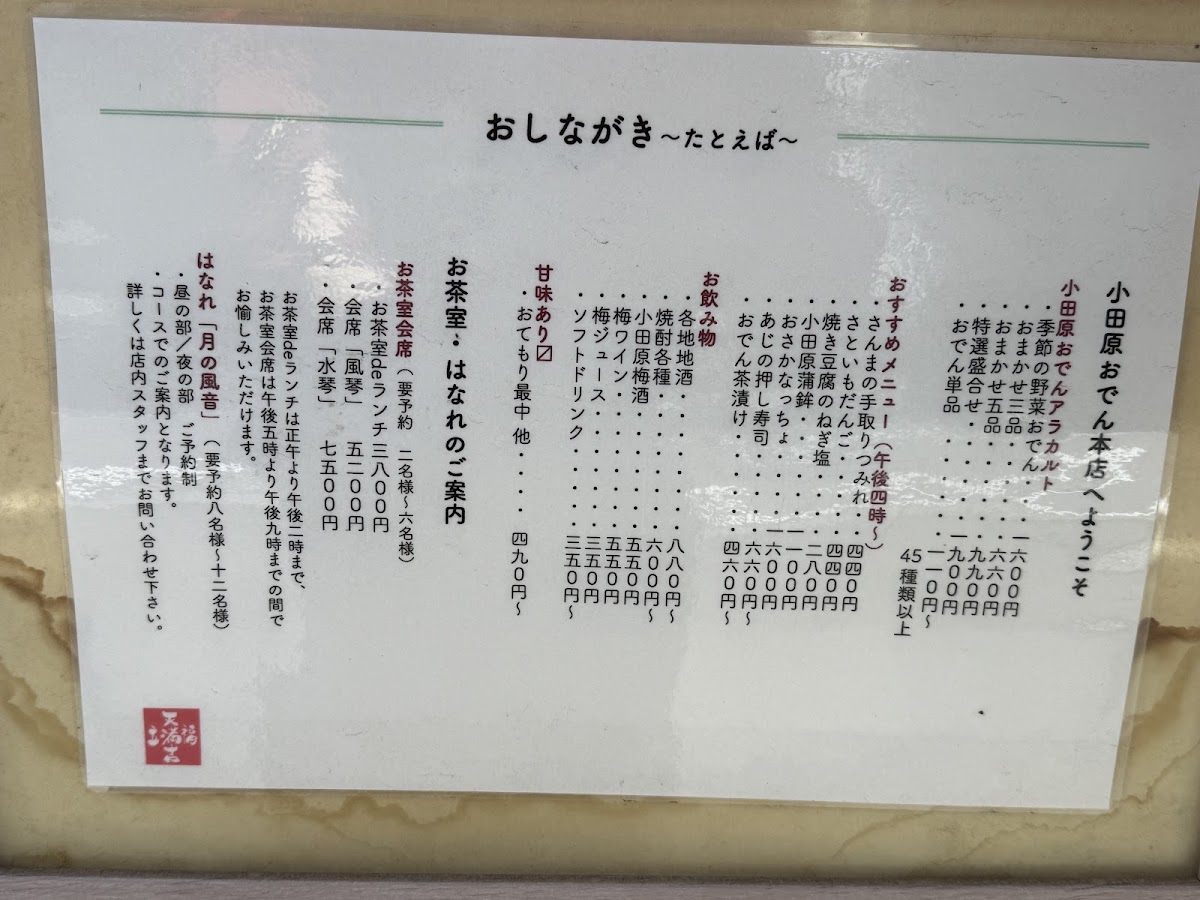 おしながき〜たとえば〜
小田原おでん本店へようこそ
小田原おでんアラカルト
・季節の野菜おでん・・一六〇〇円
・おまかせ三品・・・・六六〇円
・おまかせ五品・・・・九九〇円
・特選盛合せ・・・・・一九〇〇円
・おでん単品 一一〇円〜
45種類以上
おすすめメニュー(午後四時〜)
・さんまの手取りつみれ・・四四〇円
・さといもだんご・・・・四四〇円
・焼き豆腐のねぎ塩・・・二八〇円
・小田原蒲鉾・・・・・一一〇〇円
・おさかなっちょ・・・・一六〇〇円
・あじの押し寿司・・・・六六〇円〜
・おでん茶漬け・・・・・四六〇円〜
お飲み物
・各地地酒・・・・・・八八〇円〜
・焼酎各種・・・・・・六〇〇円〜
・小田原梅酒・・・・・五五〇円
・梅ワイン・・・・・・五五〇円
・梅ジュース・・・・・三五〇円
・ソフトドリンク・・・・三五〇円〜
甘味あり〼
・おてもり最中 他・・・・四九〇円〜
お茶室・はなれのご案内
お茶室会席(要予約 二名様〜六名様)
・お茶室deランチ 三八〇〇円
・会席「風琴」 五二〇〇円
・会席「水琴」 七五〇〇円
お茶室deランチは正午より午後二時まで、
お茶室会席は午後五時より午後九時までの間で
お愉しみいただけます。
はなれ「月の風音」(要予約八名様〜十二名様)
・昼の部/夜の部 ご予約制
・コースでのご案内となります。
詳しくは店内スタッフまでお問い合わせ下さい。